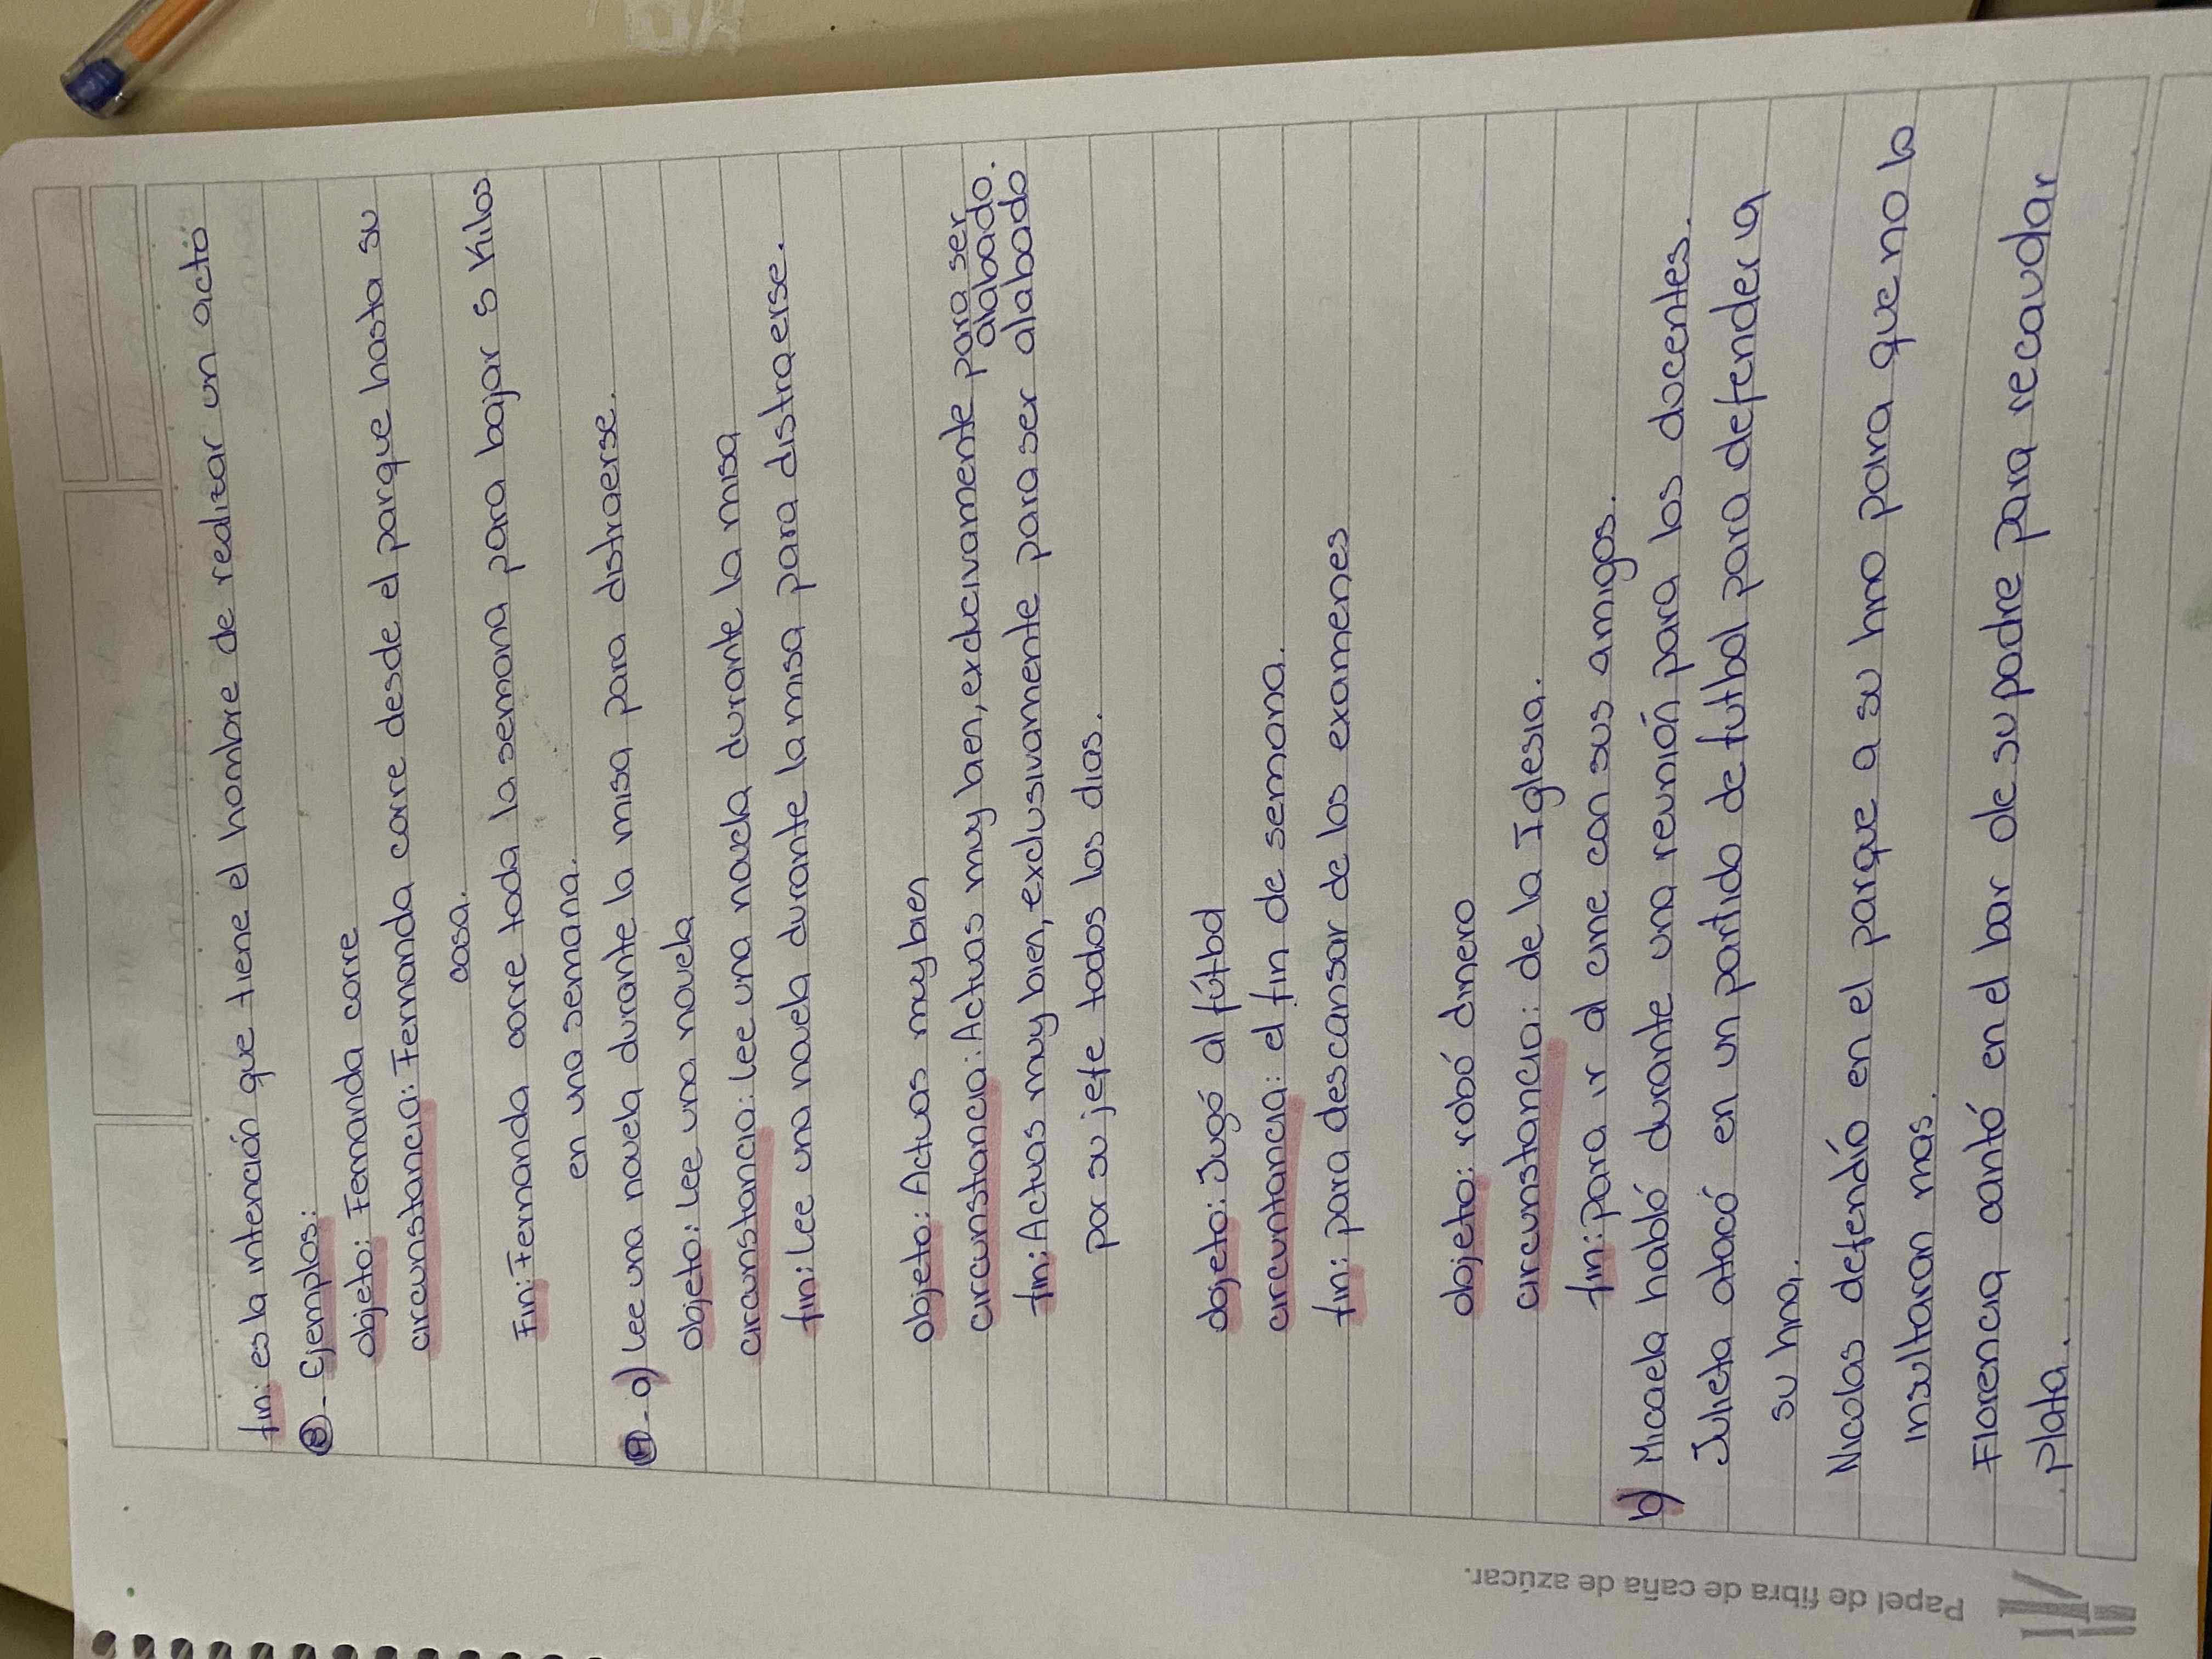 fin: es la intención que tiene el hombre de realizar un acto
③- Ejemplos:
objeto: Fernanda corre
circunstancia: Fernanda corre desde el parque hasta su
casa.
Fin: Fernanda corre toda la semana para bajar 5 Kilos
en una semana.
④-a) Lee una novela durante la misa para distraerse.
objeto: Lee una novela
circunstancia: Lee una novela durante la misa
fin: Lee una novela durante la misa para distraerse.
objeto: Actuas muy bien
circunstancia: Actuas muy bien, exclucivamente para ser
alabado.
fin: Actuas muy bien, exclusivamente para ser alabado
por su jefe todos los dias.
objeto: Jugó al fútbol
circuntancia: el fin de semana.
fin: para descansar de los examenes
objeto: robó dinero
circunstancia: de la Iglesia.
fin: para ir al cine con sus amigos.
b) Micaela habló durante una reunión para los docentes.
Julieta atacó en un partido de futbol para defender a
su hna.
Nicolas defendío en el parque a su hno para que no lo
insultaran mas.
Florencia cantó en el bar de su padre para recaudar
plata.
Papel de fibra de caña de azúcar.